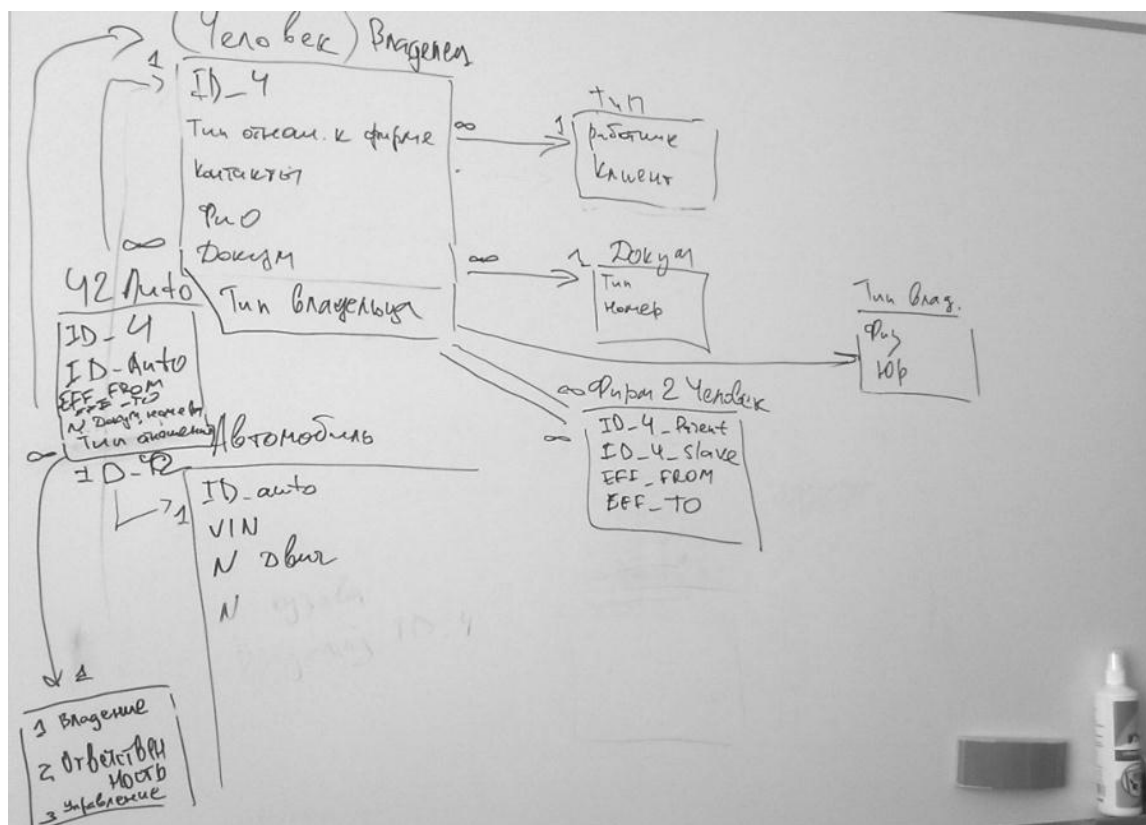 (Человек) Владелец
1
ID_Ч
Тип относ. к фирме
Контакты
ФиО
Докум
Тип владельца
∞ 1
Тип
работник
Клиент
∞ 1
Докум
Тип
номер
Тип влад.
Физ
Юр
∞ Фирм 2 Человек
∞
ID_Ч_Parent
ID_Ч_Slave
EFF_FROM
EFF_TO
∞
Ч2 Auto
ID_Ч
ID_Auto
EFF_FROM
EFF_TO
N Докум
Тип отношения
∞
ID_Ч2
1
Автомобиль
ID_auto
VIN
N Двиг
N
1
1 Владение
2 Ответствен
ность
3 Управление